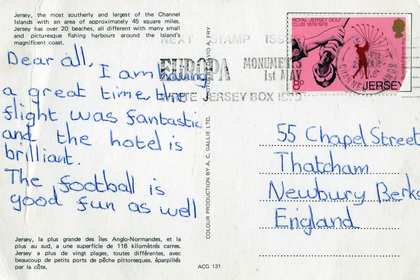 Jersey, the most southerly and largest of the Channel
Islands with an area of approximately 45 square miles.
Jersey has over 20 beaches, all different with many small
and picturesque fishing harbours around the island's
magnificent coast.
Dear all,
I am having
a great time, the
flight was fantastic
and the hotel is
brilliant.
The football is
good fun as well
Jersey, la plus grande des îles Anglo-Normandes, et la
plus au sud, a une superficie de 116 kilomètres carrés.
Jersey a plus de vingt plages, toutes différentes, avec
beaucoup de petits ports de pêche pittoresques, éparpillés
par la côte.
COLOUR PRODUCTION BY A. C. GALLIE LTD.
DAVID A. FRY
ACG 131
NEXT STAMP ISSUE
EUROPA MONUMENTS
1st MAY
WRITE JERSEY BOX
ROYAL JERSEY GOLF
JERSEY
55 Chapel Street
Thatcham
Newbury Berks
England